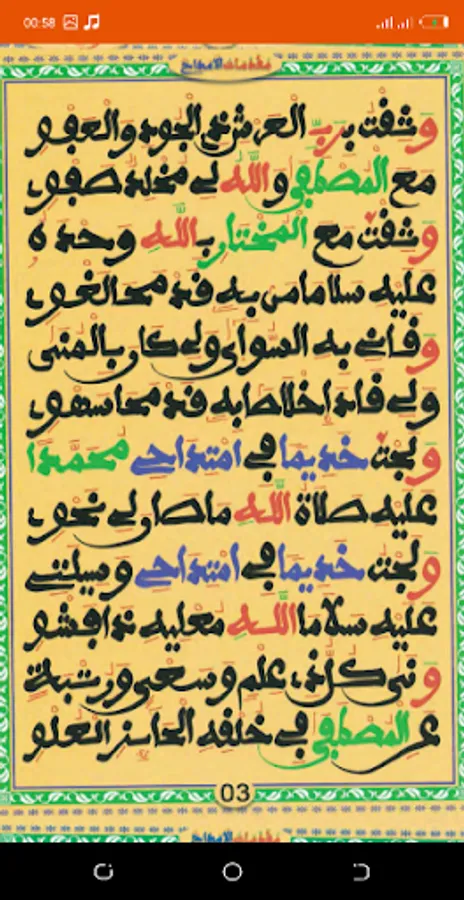 00:58
مقدمات الامداح
وثقت برب العرش ذي الجود والعفو
مع المصطفى والله لي مخلد صفو
وثقت مع المختار بالله وحده
عليه سلاما من به قد محا لغو
وفاني به السوأى ولي كان بالمنى
ولي قاد اخلاصا به قد محا سهو
ولجت خديما في امتداحي محمدا
عليه صلاة الله ما صار لي نحو
ولجت خديما في امتداحي وسيلتي
عليه سلاما الله معليه ذا فشو
ونى كل ذي علم وسعي ورتبة
عن المصطفى في خلقه الحائز العلو
03